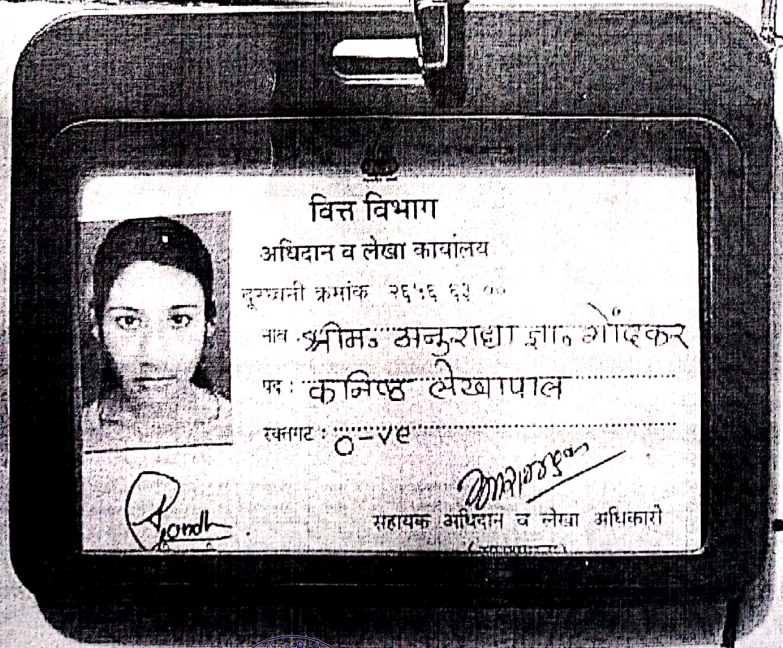 वित्त विभाग
अधिदान व लेखा कार्यालय
दूरध्वनी क्रमांक २६५६ ६३
नाव श्रीम. अनुराधा ज्ञा. गोंदकर
पद : कनिष्ठ लेखापाल
रक्तगट : O-ve
सहायक अधिदान व लेखा अधिकारी